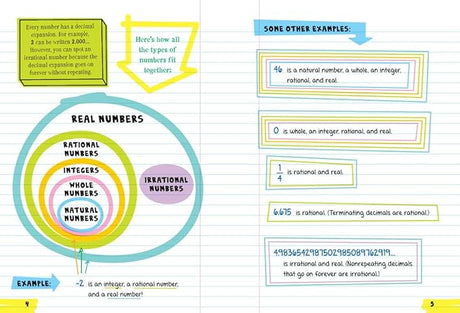 Every number has a decimal
expansion. For example,
2 can be written 2.000...
However, you can spot an
irrational number because the
decimal expansion goes on
forever without repeating.
Here's how all
the types of
numbers fit
together:
REAL NUMBERS
RATIONAL
NUMBERS
INTEGERS
WHOLE
NUMBERS
NATURAL
NUMBERS
IRRATIONAL
NUMBERS
EXAMPLE:
-2 is an integer, a rational number,
and a real number!
4
SOME OTHER EXAMPLES:
46 is a natural number, a whole, an integer,
rational, and real.
0 is whole, an integer, rational, and real.
1/4 is rational and real.
6.675 is rational. (Terminating decimals are rational.)
4.98365429875029850897629 19...
is irrational and real. (Nonrepeating decimals
that go on forever are irrational.)
5